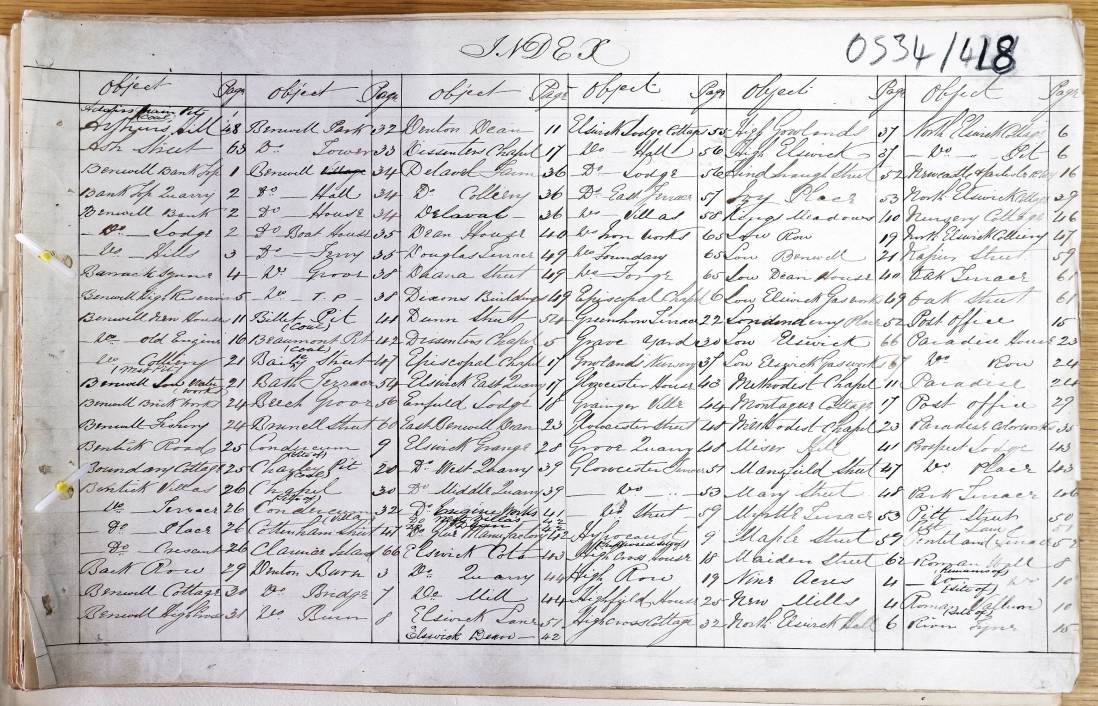 INDEX
OS34/418
Object Page Object Page Object Page Object Page Object Page Object Page
Arthurs Hill 48 Benwell Park 32 Denton Dean 11 Elswick Lodge Cottage 55 High Gowlands 37 North Elswick Cottage 6
Ash Street 63 Do Tower 33 Dissenters Chapel 17 Do Hall 56 High Elswick 37 Do Pit 6
Benwell Bank Top 1 Benwell Village 34 Delaval 36 Do Lodge 56 Street 52 Newcastle & Carlisle Rlwy 16
Bank Top Quarry 2 Do Hall 34 Do Colliery 36 Do East Terrace 57 Ivy Place 53 North Elswick 39
Benwell Bank 2 Do House 34 Delaval 36 Do Villas 58 Kings Meadows 40 Nursery Cottage 46
Do Lodge 2 Do Boat House 35 Dean House 40 Do Iron Works 65 Low Row 19 North Elswick Colliery 47
Do Hills 3 Do Ferry 35 Douglas Terrace 49 Do Foundry 65 Low Benwell 21 Napier Street 59
Barrack Square 4 Do Grove 38 Diana Street 49 Do Forge 65 Low Dean House 40 Oak Terrace 61
Benwell High Reservoir 5 Do T.P. 38 Dixons Buildings 49 Episcopal Chapel 6 Low Elswick Gas works 49 Oak Street 61
Benwell Dean House 11 Billet Pit (Coal) 41 Dunn Street 54 Greenhow Terrace 22 Londonderry Place 52 Post office 15
Do old Engine 16 Beaumont Pit (Coal) 42 Dissenters Chapel 5 Grave Yard 30 Low Elswick 66 Paradise House 23
Do Colliery 21 Street 47 Episcopal Chapel 17 Gowlands Nursery 37 Low Elswick Gasworks 67 Do Row 24
Benwell Water works 21 Bath Terrace 54 Elswick East Quarry 17 Gloucester House 43 Methodist Chapel 11 Paradise 24
Benwell Brick Works 24 Beech Grove 56 Enfield Lodge 18 Grainger Ville 44 Montague Cottage 17 Post office 29
Benwell Fishery 24 Brunell Street 60 East Benwell Dean 23 Gloucester Street 48 Methodist Chapel 23 Paradise 35
Bentick Road 25 Condercum 9 Elswick Grange 28 Grove Quarry 48 Miser Hill 41 Prospect Lodge 43
Boundary Cottage 25 Charley Pit (Coal) 20 Do West Quarry 39 Gloucester Terrace 51 Mansfield Street 47 Do Place 43
Bentick Villas 26 Chapel (Site of) 30 Do Middle Quarry 39 Do 53 Mary Street 48 Park Terrace 46
Do Terrace 26 Condercum (Villa) 32 Do Engine Works 41 Do Street 59 Myrtle Terrace 53 Pitt Street 50
Do Place 26 Cottenham Street 47 Do Glue Manufactory 42 Hypocaust 9 Maple Street 59 Pentland Terrace 52
Do Cresant 26 Clarence Island 66 Elswick Cots 43 High Cross House 18 Maiden Street 62 Roman Wall (Remains of) 8
Back Row 29 Denton Burn 3 Do Quarry 44 High Row 19 Nine Acres 4 Do (Site of) 10
Benwell Cottage 30 Do Bridge 7 Do Mill 44 Highfield House 25 New Mills 4 Roman Vallum (Site of) 10
Benwell High house 31 Do Burn 8 Elswick Lane 51 High Cross Cottage 32 North Elswick Hall 6 River Tyne 15
Elswick Dean 42